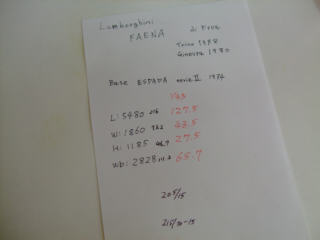 Lamborghini
FAENA
di Frua
Torino 1978
Ginevra 1980
Base ESPADA serie II 1974
1/43
L: 5480 127.5
W: 1860 43.2 43.5
H: 1185 27.5
Wb: 2828 65.7
205/15
215/70-15